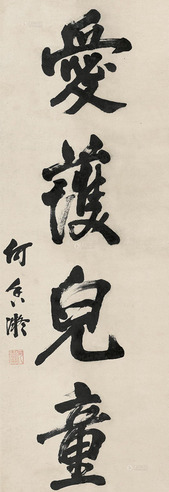 愛護兒童
何香凝